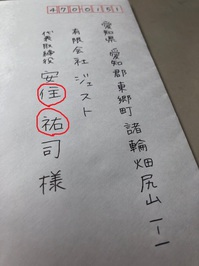 4700151
愛知県 愛知郡東郷町 諸輪畑尻山一ー一
有限会社ジェスト
代表取締役 安住祐司様